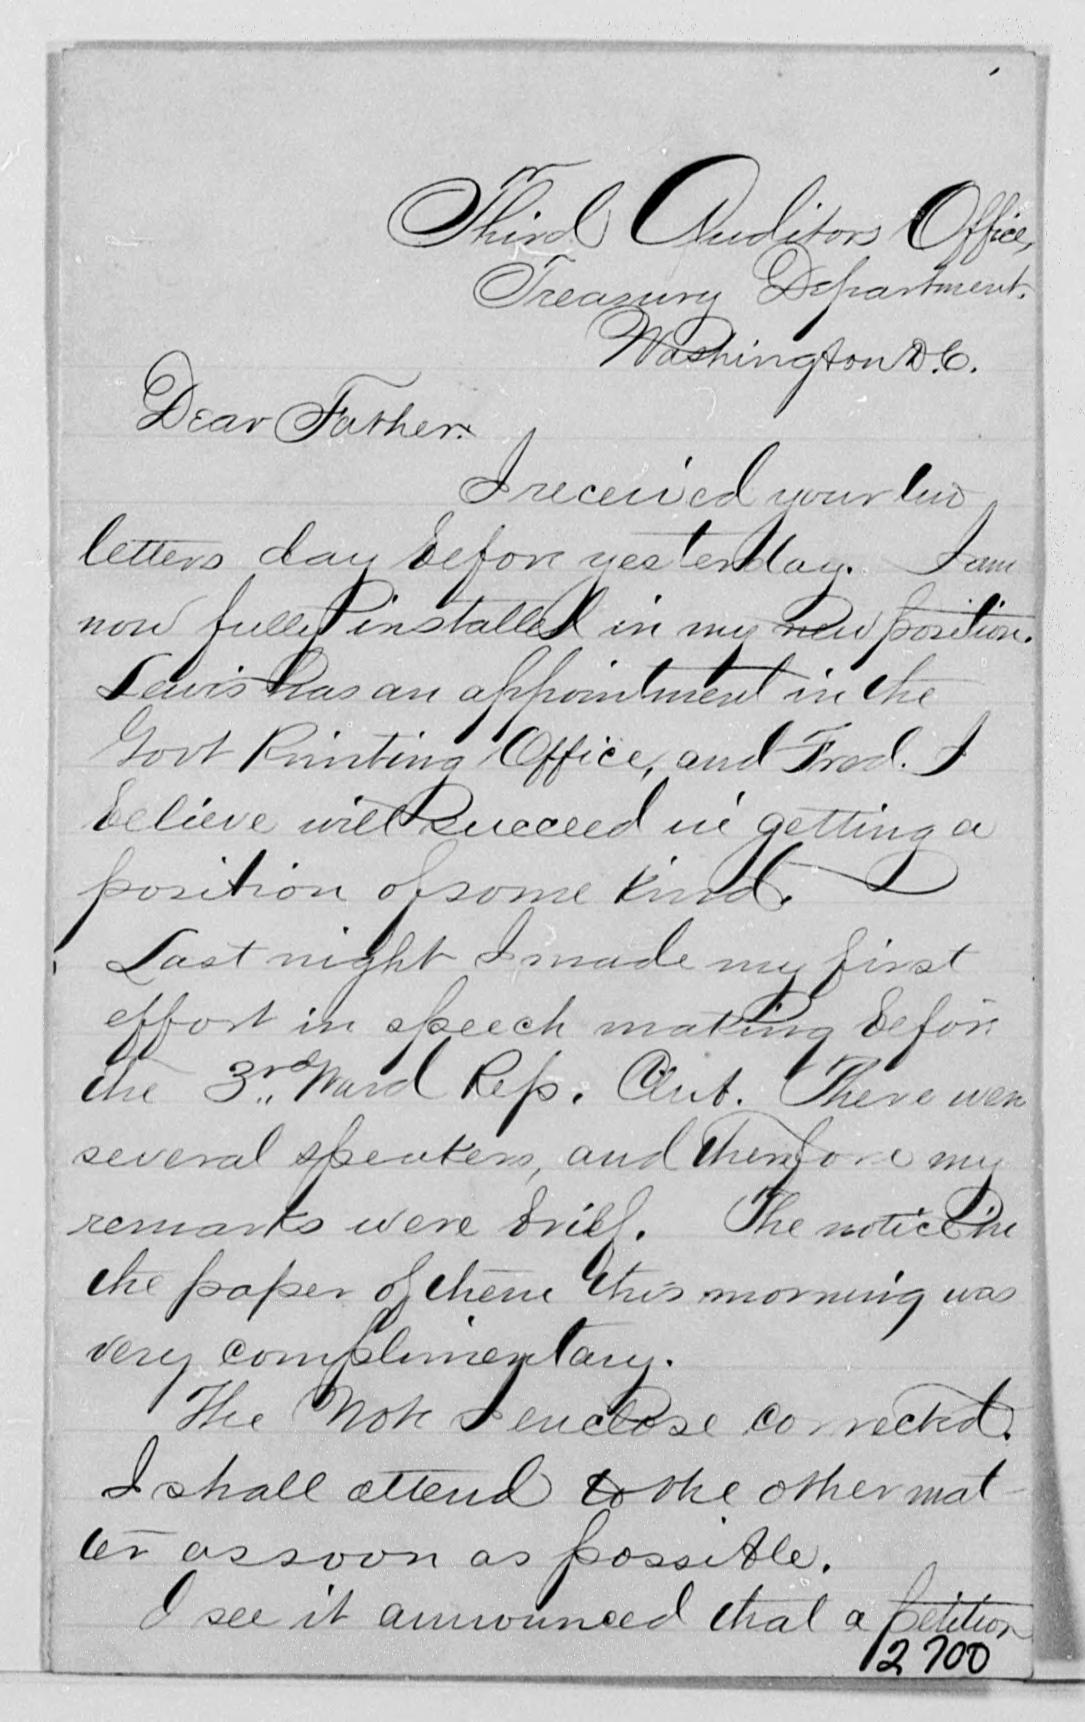 Third Auditors Office,
Treasury Department.
Washington D.C.
Dear Father:
I received your two
letters day before yesterday. I am
now fully installed in my new position.
Lewis has an appointment in the
Govt Printing Office, and Fred. I
believe will succeed in getting a
position of some kind.
Last night I made my first
effort in speech making before
the 3rd Ward Rep. Club. There were
several speakers, and therefore my
remarks were brief. The notice in
the paper of them this morning was
very complimentary.
The Note I enclose corrected.
I shall attend to the other mat-
ter as soon as possible.
I see it announced that a petition
2700